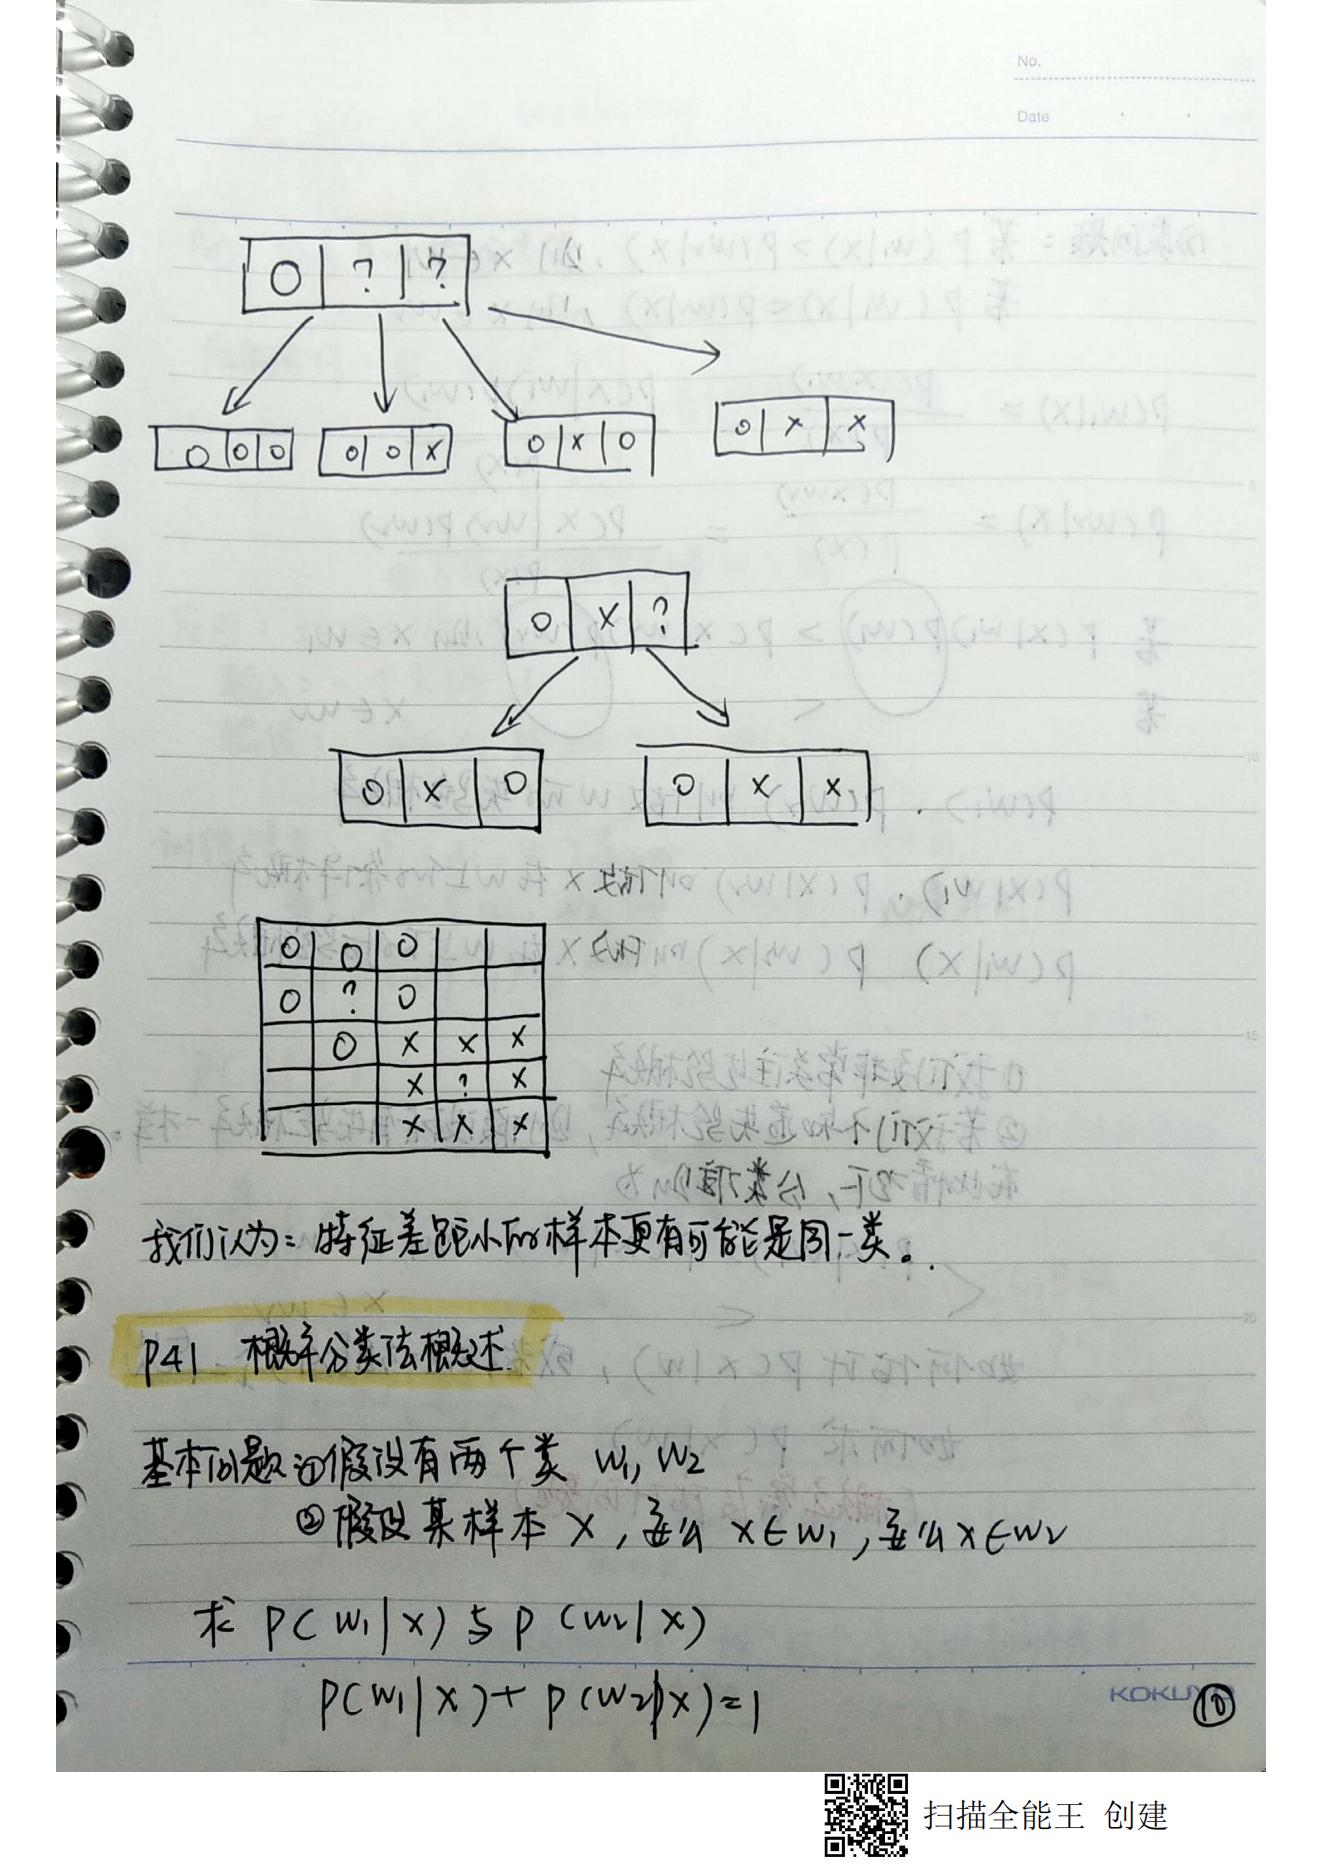 No.
Date
O ? ?
O O O
O O X
O X O
O X X
O X ?
O X O
O X X
O O O
O ? O
O X X X
X ? X
X X X
我们认为：特征差距小的样本更有可能是同一类。
P41 概率分类法概述.
基本问题：①假设有两个类 W1, W2
②假设某样本 X，要么 X∈W1，要么X∈W2
求 P(W1|X)与P(W2|X)
P(W1|X)+P(W2|X)=1
KOKUYO
⑩
扫描全能王 创建